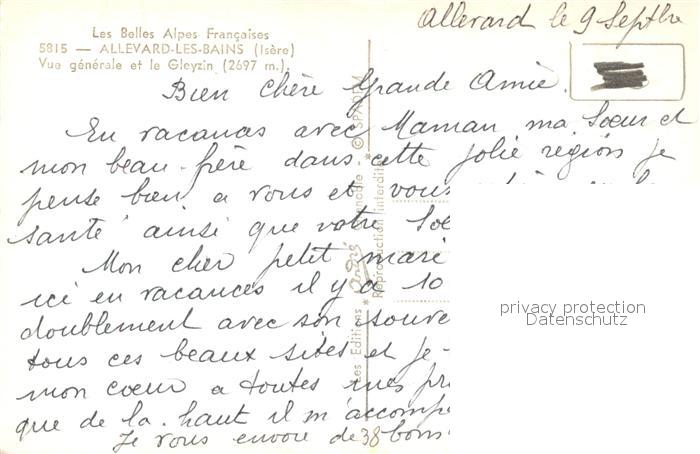 Allevard le 9 Septbre
Les Belles Alpes Françaises
5815 — ALLEVARD-LES-BAINS (Isère)
Vue générale et le Gleyzin (2697 m.)
Bien chère Grande Amie.
En vacances avec Maman ma Sœur et
mon beau-frère dans cette jolie région je
pense bien a vous et vous
santé ainsi que votre Soe
Mon cher petit mari
ici en vacances il y a 10
doublement avec son souve
tous ces beaux sites et je
mon cœur a toutes mes pr
que de la-haut il m'accompa
Je vous envoie de bons
38
Les Editions André Grenoble - © SPADEM
Reproduction interdite
privacy protection
Datenschutz